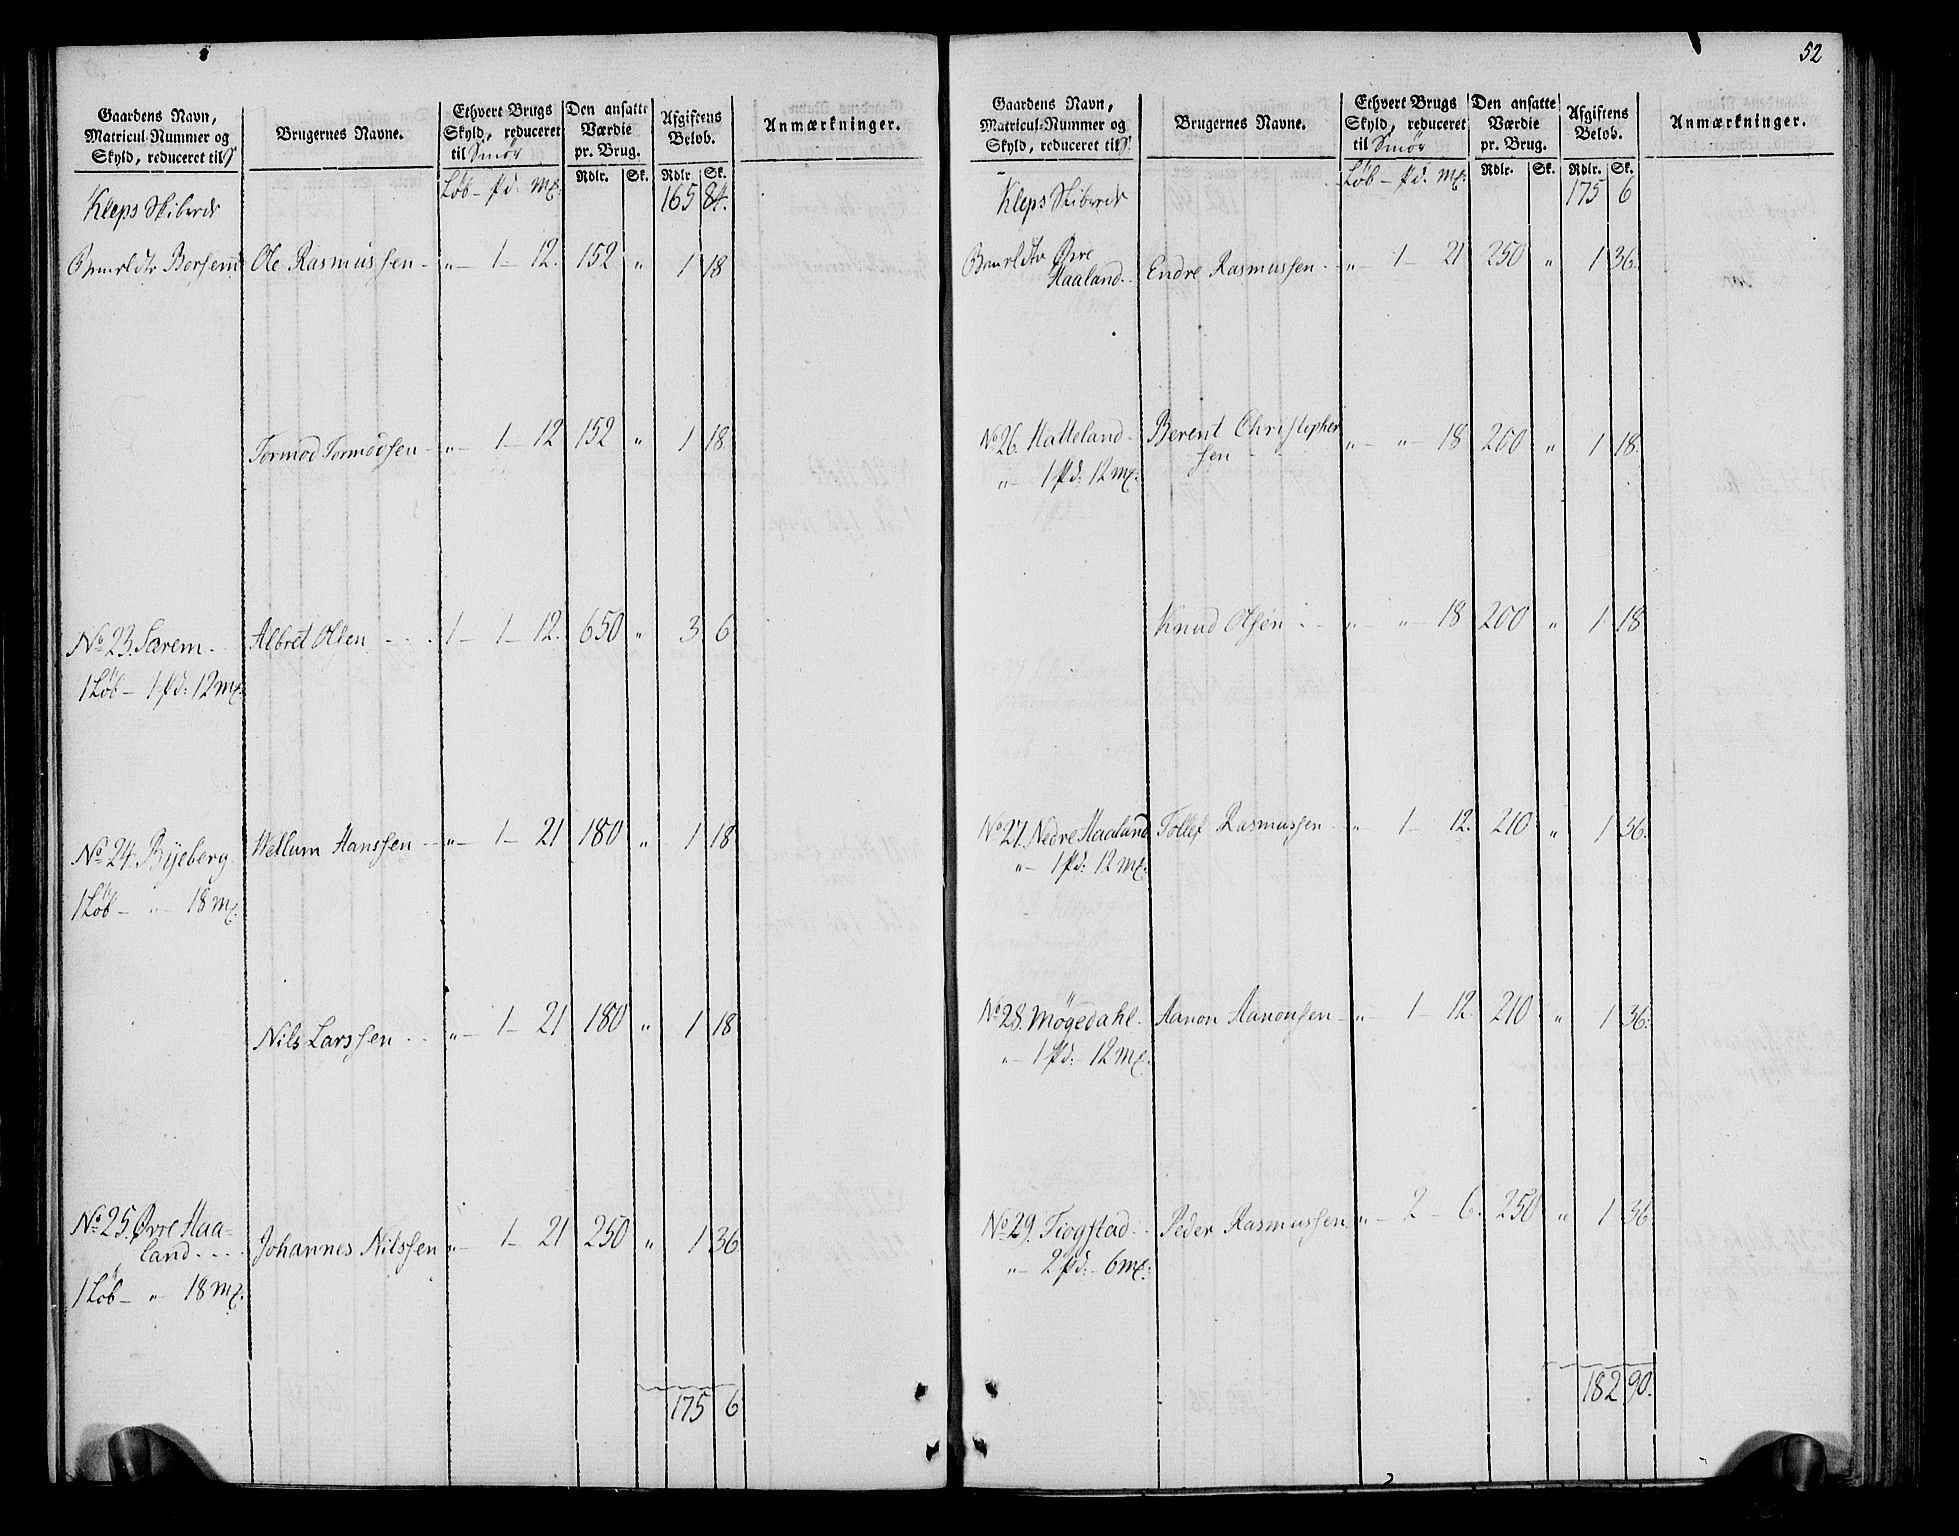 Gaardens Navn, Matricul-Nummer og Skyld, reduceret til S | Brugernes Navne. | Ethvert Brugs Skyld, reduceret til Smör | Den ansatte Værdie pr. Brug. | Afgiftens Beløb. | Anmærkninger.
Rdlr. | Sk. | Rdlr | Sk.
Kleps Skiberede | Löb – pd: mk: | 165 | 84.
Borsem Ole Rasmussen – „ – 1 – 12. 152 „ 1 18
Tormod Tormodsen – „ – 1 – 12 152 „ 1 18.
No 23. Særem. Albret Olsen 1 – 1 – 12. 650 „ 3 6
1 Löb – 1 pd: 12 mk:
No 24. Byeberg Wellum Hanssen – „ – 1 – 21 180 „ 1 18
1 Löb – „ – 18 mk.
Nils Larssen „ – 1 – 21 180 „ 1 18
No 25. Øvre Haa-
land Johannes Nilssen „ – 1 – 21 250 „ 1 36
1 Löb – „ 18 mk.
175 6
52
Gaardens Navn, Matricul-Nummer og Skyld, reduceret til S. | Brugernes Navne. | Ethvert Brugs Skyld, reduceret til Smör | Den ansatte Værdie pr. Brug. | Afgiftens Beløb. | Anmærkninger.
Rdlr. | Sk. | Rdlr. | Sk.
Kleps Skiberede | Löb – pd: mk: | 175 | 6
Øvre
Haaland Endre Rasmussen „ – 1 – 21 250 „ 1 36.
No 26. Hatteland – Berent Christopher
sen „ – „ – 18 200 „ 1 18.
„ – 1 pd: 12 mk:
Knud Olsen „ – „ – 18 200 „ 1 18
No 27. Nedre Haaland Tollef Rasmussen „ – 1 – 12. 210 „ 1 36.
„ – 1 pd: 12 mk:
No 28. Mögedahl. Aanon Aanonsen – „ – 1 – 12. 210 „ 1 36.
„ – 1 pd: – 12 mk:
No 29. Tiogstad Peder Rasmussen „ – 2 – 6. 250 „ 1 36
„ – 2 pd: – 6 mk:
182 90.